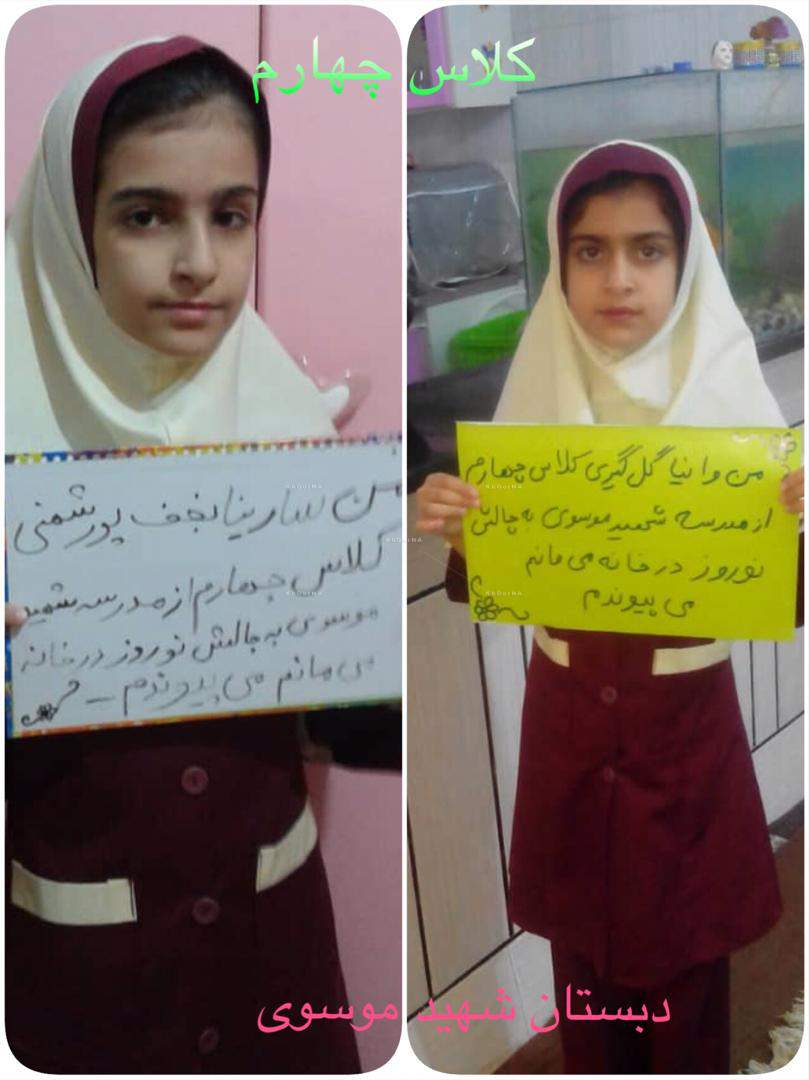 کلاس چهارم
من سارینا نجف پور شمنی
کلاس چهارم از مدرسه شهید
موسوی به چالش نوروز در خانه
می مانم می پیوندم
من وانیا گل گیری کلاس چهارم
از مدرسه شهید موسوی به چالش
نوروز در خانه می مانم
می پیوندم
دبستان شهید موسوی